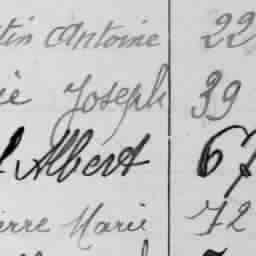 tin Antoine 22
ie Joseph 39
l Albert 67
ierre Marie 72